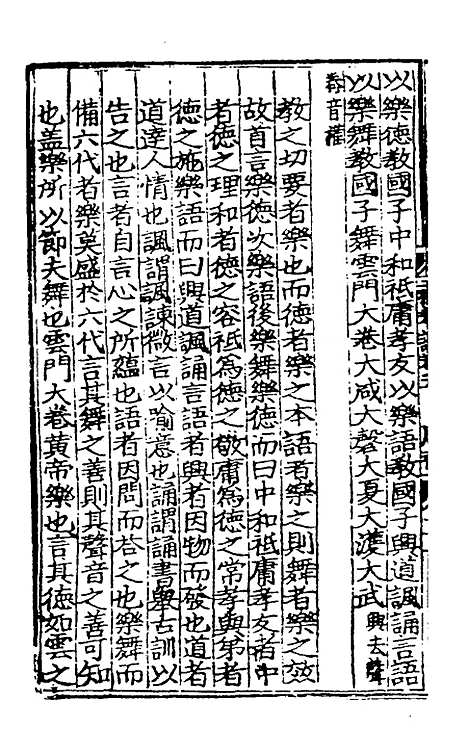 以樂徳教國子中和祇庸孝友以樂語教國子興道諷誦言語
以樂舞教國子舞雲門大卷大咸大磬大夏大濩大武興去聲
音權
教之切要者樂也而徳者樂之本語者樂之則舞者樂之效
故首言樂徳次樂語後樂舞樂徳而曰中和祇庸孝友者中
者徳之理和者徳之容祇為徳之敬庸為徳之常孝與弟者
徳之施樂語而曰興道諷誦言語者興者因物而發也道者
道達人情也諷謂諷諫微言以喻意也誦謂誦書舉古訓以
告之也言者自言心之所蘊也語者因問而荅之也樂舞而
備六代者樂莫盛於六代言其舞之善則其聲音之善可知
也盖樂所以節夫舞也雲門大卷黄帝樂也言其徳如雲之